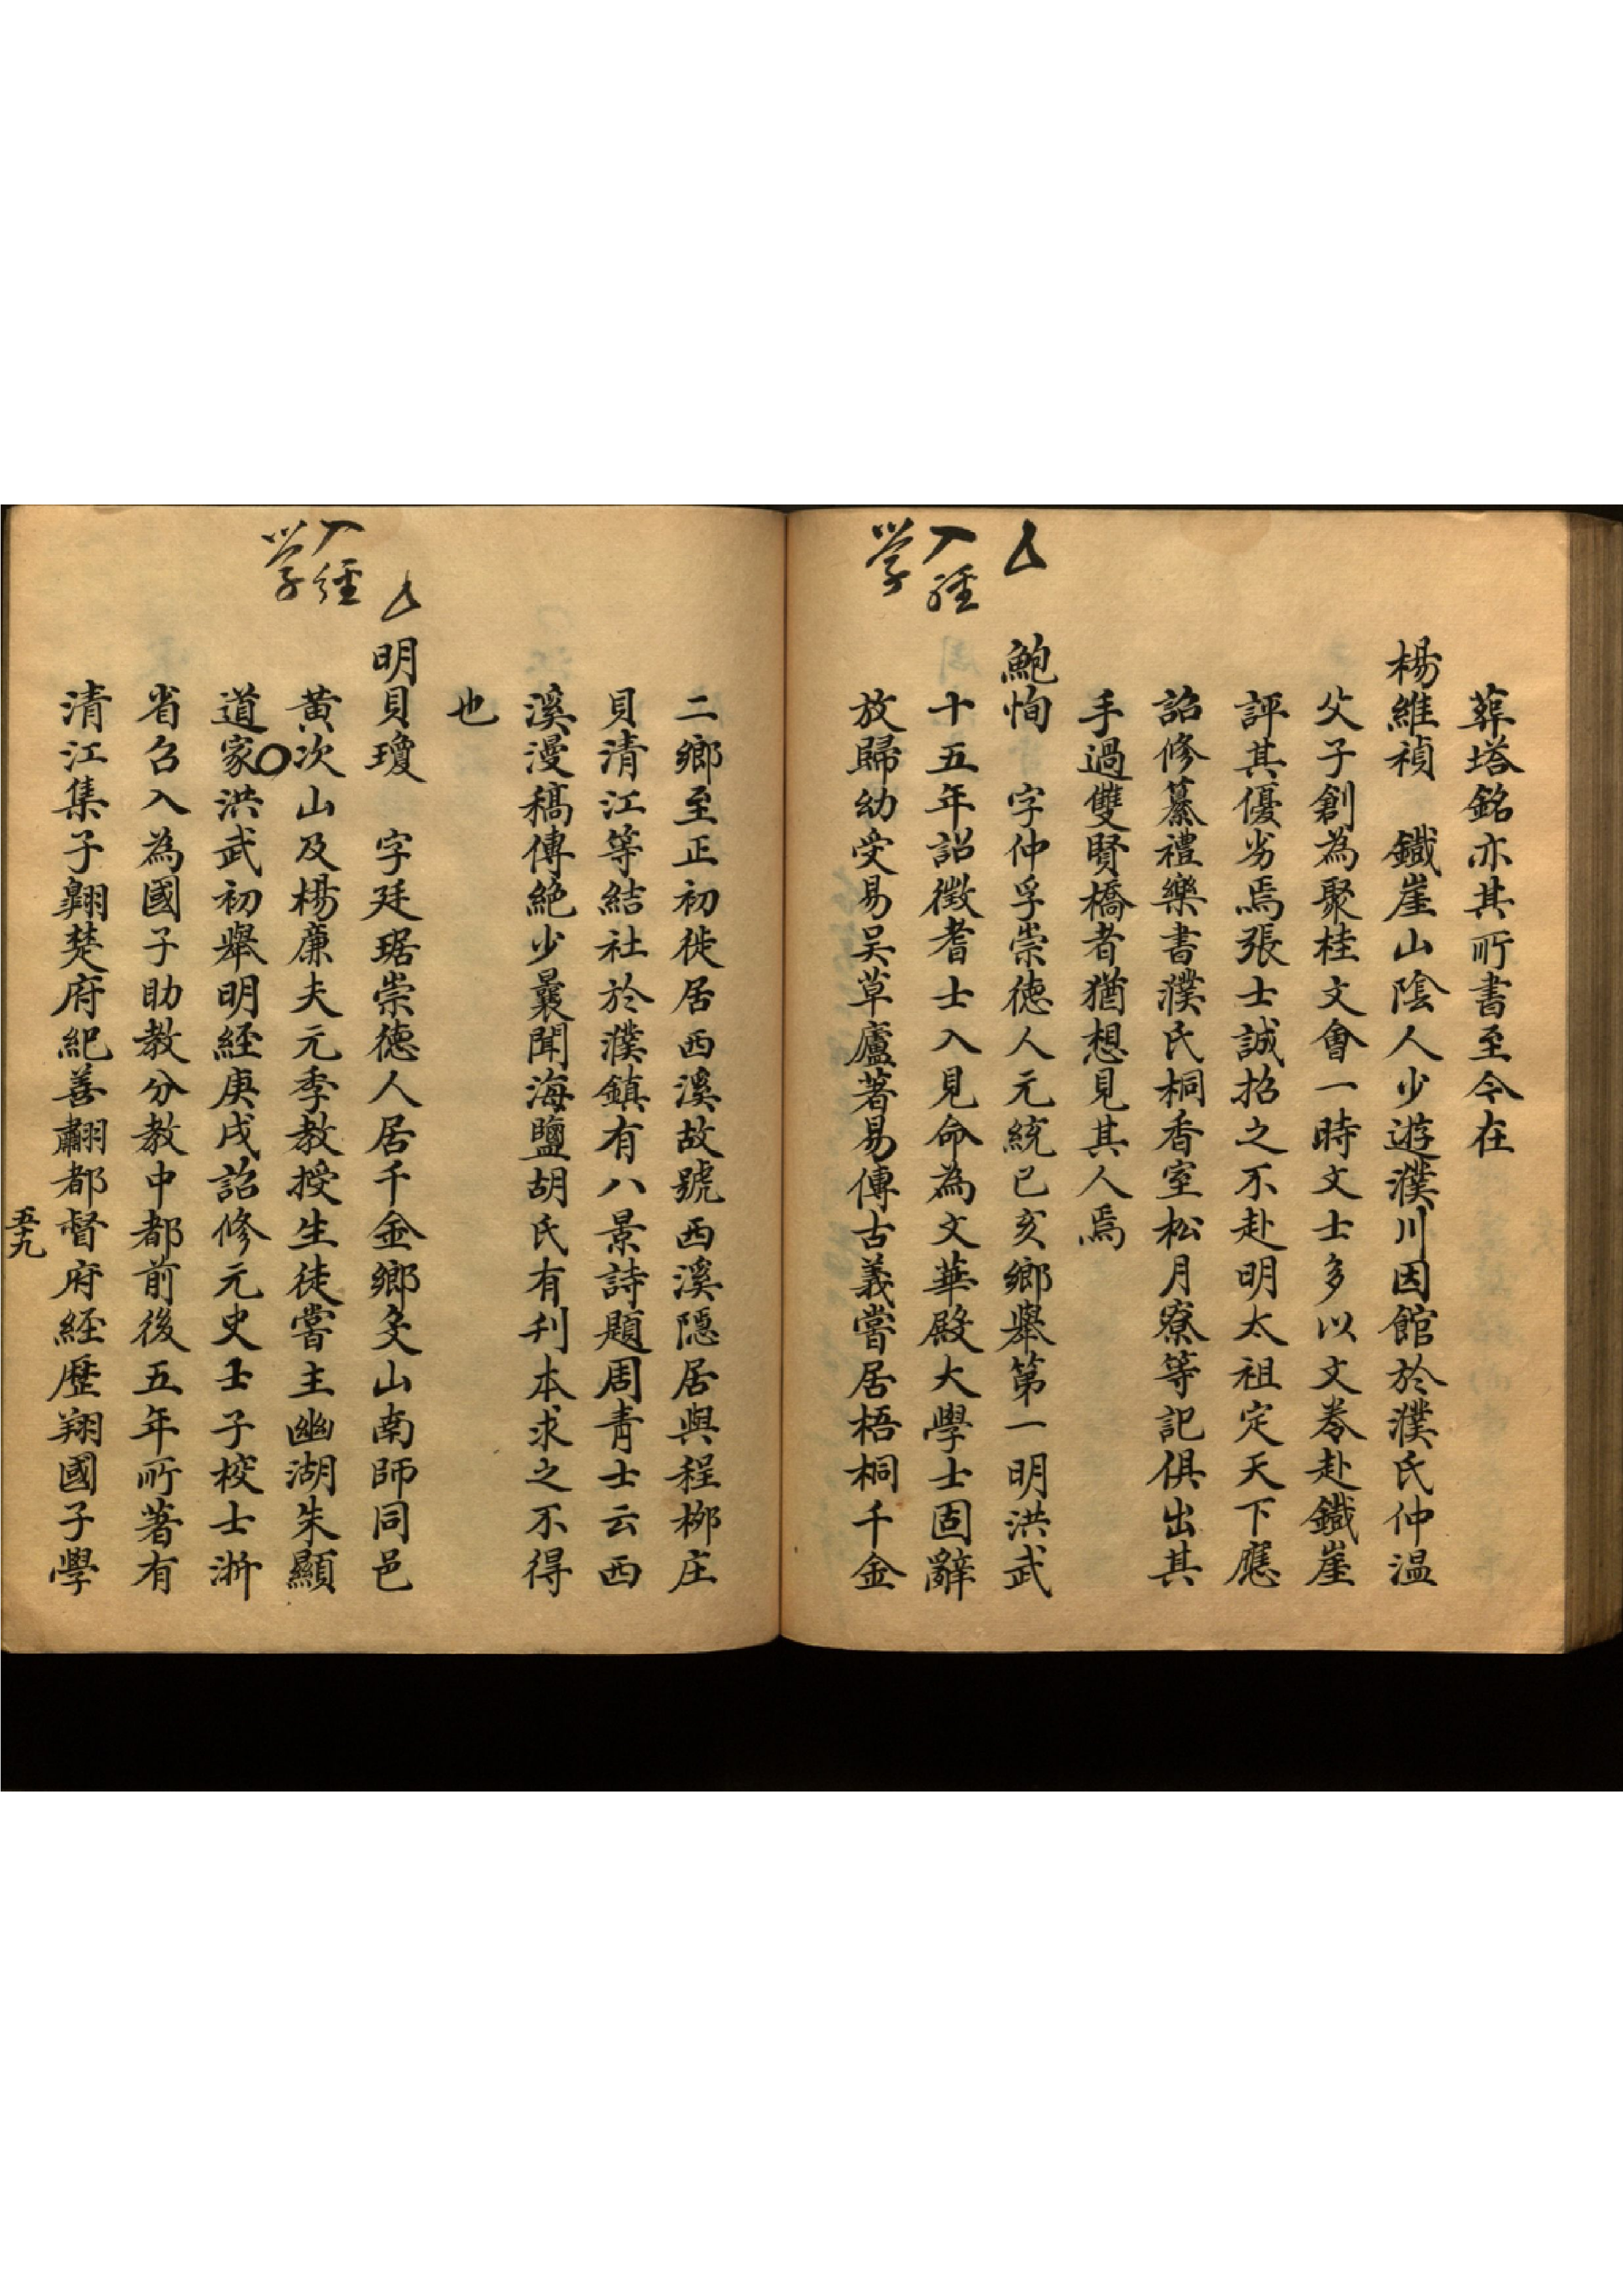 葬塔銘亦其所書至今在
楊維禎　鐵崖山陰人少遊濮川因館於濮氏仲温
父子創為聚桂文會一時文士多以文卷赴鐵崖
評其優劣焉張士誠招之不赴明太祖定天下應
詔修纂禮樂書濮氏桐香室松月寮等記俱出其
手過雙賢橋者猶想見其人焉
鮑恂　字仲孚崇德人元統已亥鄉舉第一明洪武
十五年詔徵耆士入見命為文華殿大學士固辭
放歸幼受易吴草廬著易傳古義嘗居梧桐千金
入經
学
二鄉至正初徙居西溪故號西溪隱居與程柳庄
貝清江等結社於濮鎮有八景詩題周青士云西
溪漫稿傳絶少曩聞海鹽胡氏有刋本求之不得
也
明貝瓊　字廷琚崇德人居千金鄉殳山南師同邑
黄次山及楊廉夫元季教授生徒嘗主幽湖朱顯
道家〇洪武初舉明經庚戌詔修元史士子校士浙
省召入為國子助教分教中都前後五年所著有
清江集子翺楚府紀善翽都督府經歷翔國子學
入經
学
五十九